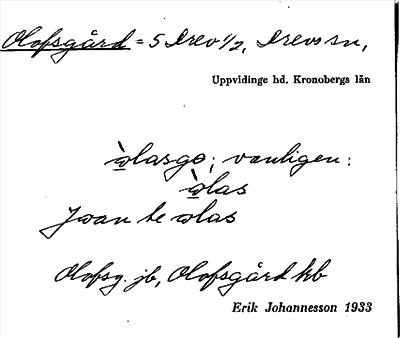 Olofsgård = 5 Drev 1/2, Drevs sn,
Uppvidinge hd. Kronobergs län
òlasgo; vanligen:
òlas
Jwan te olas
Olofsg. jb, Olofsgård hb
Erik Johannesson 1933